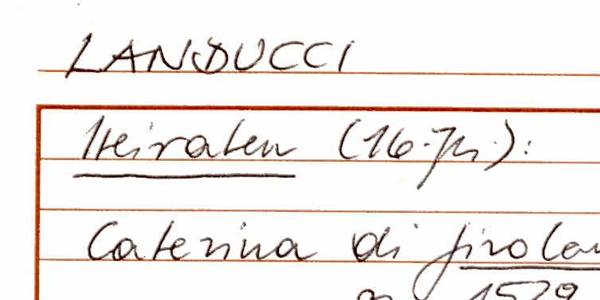 LANDUCCI
Heiraten (16. Jh.):
Caterina di
1529